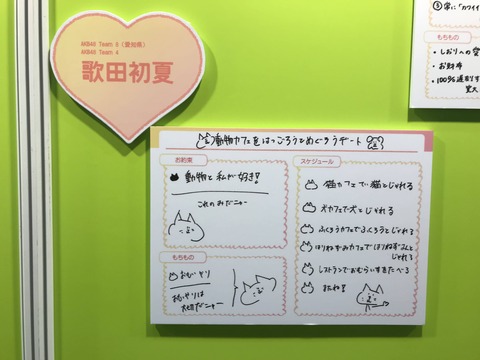 AKB48 Team 8（愛知県）
AKB48 Team 4
歌田初夏
動物カフェをはつごろうとめぐろうデート
お約束
動物と私が好き!
これのみだニャー
もちもの
おもいやり
おもいやりは
大切だニャー
スケジュール
猫カフェで猫とじゃれる
犬カフェで犬とじゃれる
ふくろうカフェでふくろうとじゃれる
はりねずみカフェではりねずみさんと
じゃれる
レストランでおむらいすをたべる
またね!
③常に「カワイイ
もちもの
・しおりへの愛
・お財布
・100%